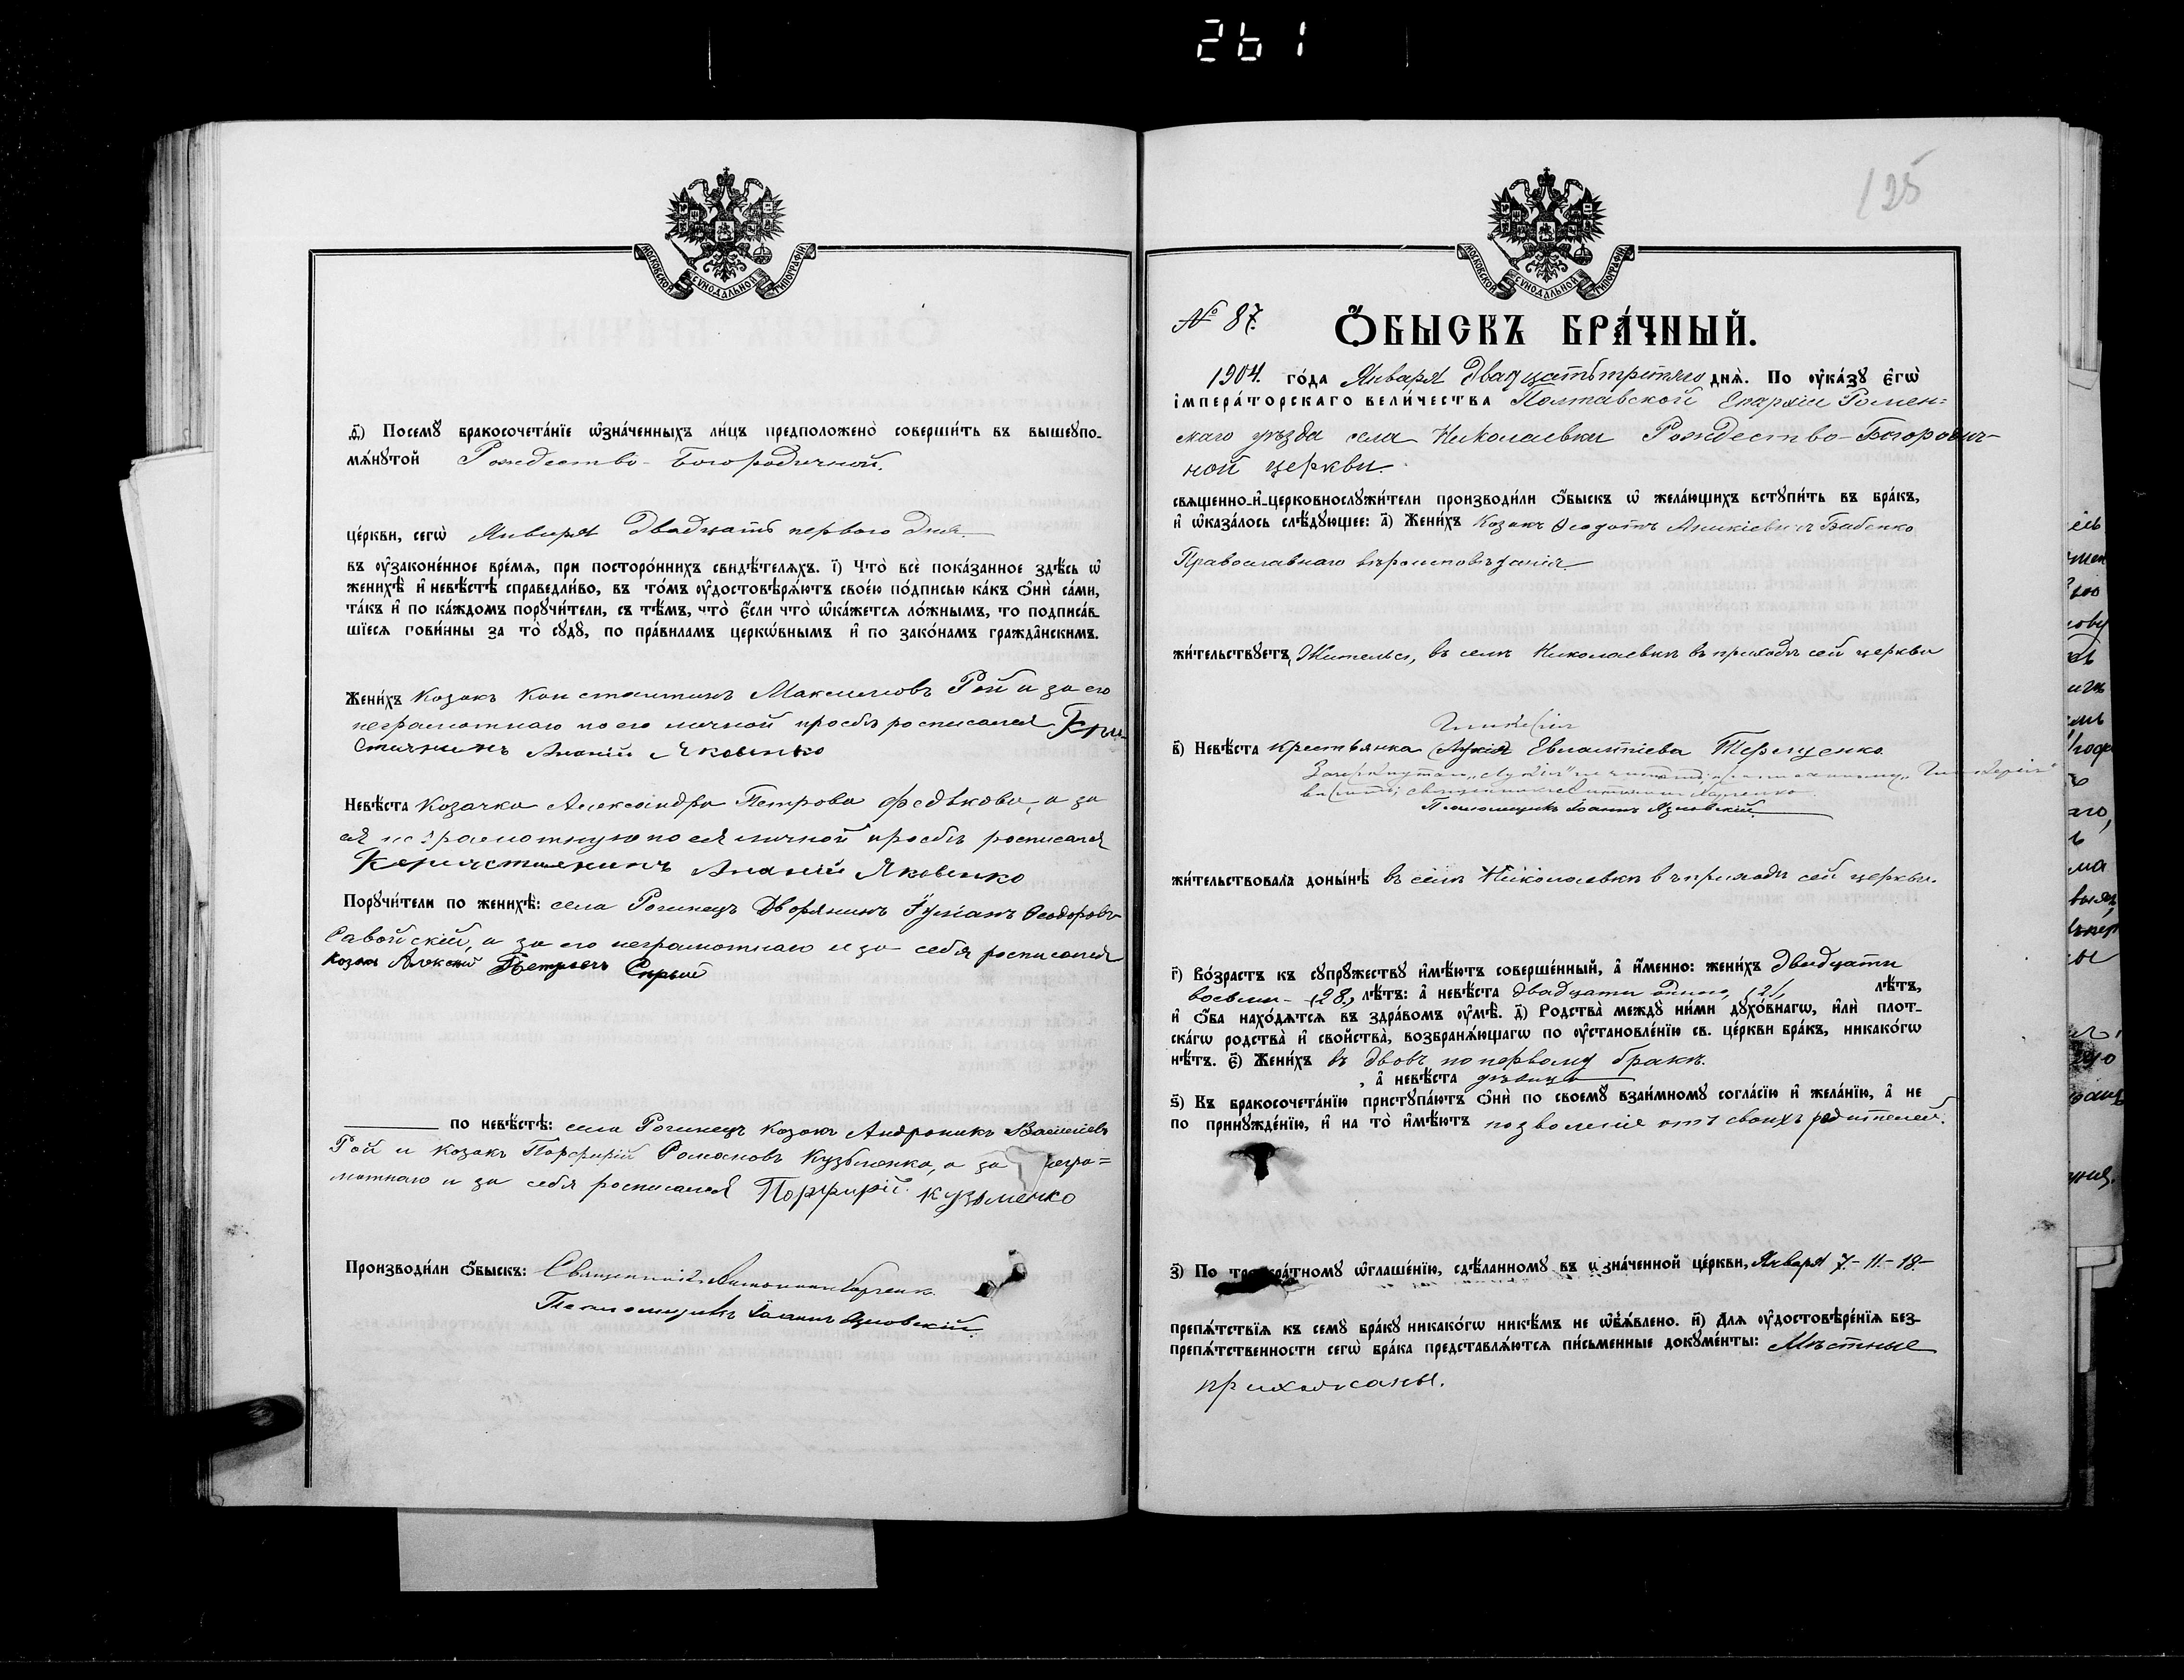 261
МОСКОВСКОЙ СѴНОДАЛЬНОЙ ТИПОГРАФІИ
д҃) Посемꙋ̀ бракосочета́нїе ѡ҆зна́ченныхъ ли́цъ предположено̀ соверши́ть въ вышеꙋпо-
мѧ́нꙋтой Рождество-Богородичной.
це́ркви, сегѡ̀ Января Двадцать первого дня.
въ ᲂу҆зако́не́нное вре́мѧ, при посторо́ннихъ свидѣ́телѧхъ. і҃) Что̀ всѐ пока́занное здѣ́сь ѡ҆
женихѣ̀ и҆ невѣ́стѣ справедли́во, въ то́мъ ᲂу҆достовѣрѧ́ютъ свое́ю по́дписью ка́къ ѻ҆нѝ са́ми,
та́къ и҆ по ка́ждомъ порꙋчи́тели, съ тѣ́мъ, что̀ є҆́сли что̀ ѡ҆ка́жетсѧ ло́жнымъ, то подписа́в-
шїесѧ пови́нны за то̀ сꙋдꙋ̀, по пра́виламъ церкѡ́внымъ и҆ по зако́намъ гражда́нскимъ.
Жени́хъ Козакъ Константинъ Максимовъ Рой и за его
неграмотнаго по его личной просьбѣ росписался Кри-
стиянинъ Ананій Яковенко
Невѣ́ста Козачка Александра Петрова Федькова, а за
ея неграмотную по ея личной просьбѣ росписался
Ананій Яковенко
Порꙋчи́тели по женихѣ̀: села Рогинецъ Дворянинъ Іуліанъ Ѳеодоровъ
Савойскій, а за его неграмотнаго и за себя росписался
Козакъ Алексий Петровъ Сирый
по невѣ́стѣ: села Рогинецъ козакъ Андроникъ Васильевъ
Рой и козакъ Порфирій Романовъ Кузьменко, а за негра=
мотнаго и за себя росписался Порфирій Кузьменко
Производи́ли ѻ҆́быскъ: Священникъ
Псаломщикъ Іоаннъ Язловскій.
125
МОСКОВСКОЙ СѴНОДАЛЬНОЙ ТИПОГРАФІИ
№ 87. Ѻ҆́БЫСКЪ БРА́ЧНЫЙ.
1904. го́да Января Двадцать третяго днѧ̀. По ᲂу҆ка́зꙋ є҆гѡ̀
і҆мпера́торскаго вели́чества Полтавской Епархіи Ромен=
скаго уѣзда села Николаевки Рождество-Богородич-
ной церкви.
свѧщенно-и҆-церковнослꙋжи́тели производи́ли ѻ҆́быскъ ѡ҆ жела́ющихъ встꙋпи́ть въ бра́къ,
и҆ ѡ҆каза́лось слѣ́дꙋющее: а҃) Жени́хъ Козакъ Ѳеодотъ Аникіевичъ Бабенко
Православнаго вѣроисповѣданія.
жи́тельствꙋетъ Жительст, въ селѣ Николаевкѣ въ приходѣ сей церкви
Гликерія
в҃) Невѣ́ста крестьянка Лукія Евлампіева Терещенко.
Зачеркнутая „Лукія" не читать, а „Гликерія"
Псаломщикъ Іоаннъ Язловскій.
жи́тельствовала донынѣ̀ въ селѣ Николаевкѣ въ приходѣ сей церкви.
г҃) Во́зрастъ къ сꙋпрꙋ́жествꙋ и҆мѣ́ютъ соверше́нный, а҆ и҆́менно: жени́хъ двадцати
восьми - (28.) лѣ́тъ: а҆ невѣ́ста двадцати одного, (21, лѣ́тъ,
и҆ ѻ҆́ба нахо́дѧтсѧ въ здра́вомъ ᲂу҆мѣ̀. д҃) Родства̀ междꙋ̀ ни́ми дꙋхо́внагѡ, и҆лѝ плот-
ска́гѡ родства̀ и҆ сво́йства̀, возбранѧ́ющагѡ по ᲂу҆становле́нїю св. це́ркви бра́къ, никако́гѡ
нѣ́тъ. є҃) Жени́хъ въ вдовъ по первому бракѣ.
, а҆ невѣ́ста дѣвица
ѕ҃) Къ бракосочета́нїю пристꙋпа́ютъ ѻ҆нѝ по своемꙋ̀ взаи́мномꙋ согла́сїю и҆ жела́нїю, а҆ не
по принꙋжде́нїю, и҆ на то̀ и҆мѣ́ютъ позволеніе отъ своихъ родителей.
з҃) По троекра́тномꙋ ѡ҆глаше́нїю, сдѣ́ланномꙋ въ ѡ҆зна́ченной це́ркви, Января 7.- 11.- 18.-
препѧ́тствїѧ къ семꙋ̀ бра́кꙋ никако́гѡ никѣ́мъ не ѡ҆б̾ѧ́влено. и҃) Длѧ ᲂу҆достовѣре́нїѧ без-
препѧ́тственности сегѡ̀ бра́ка представлѧ́ютсѧ пи́сьменные докꙋме́нты: Мѣстные
прихожаны.